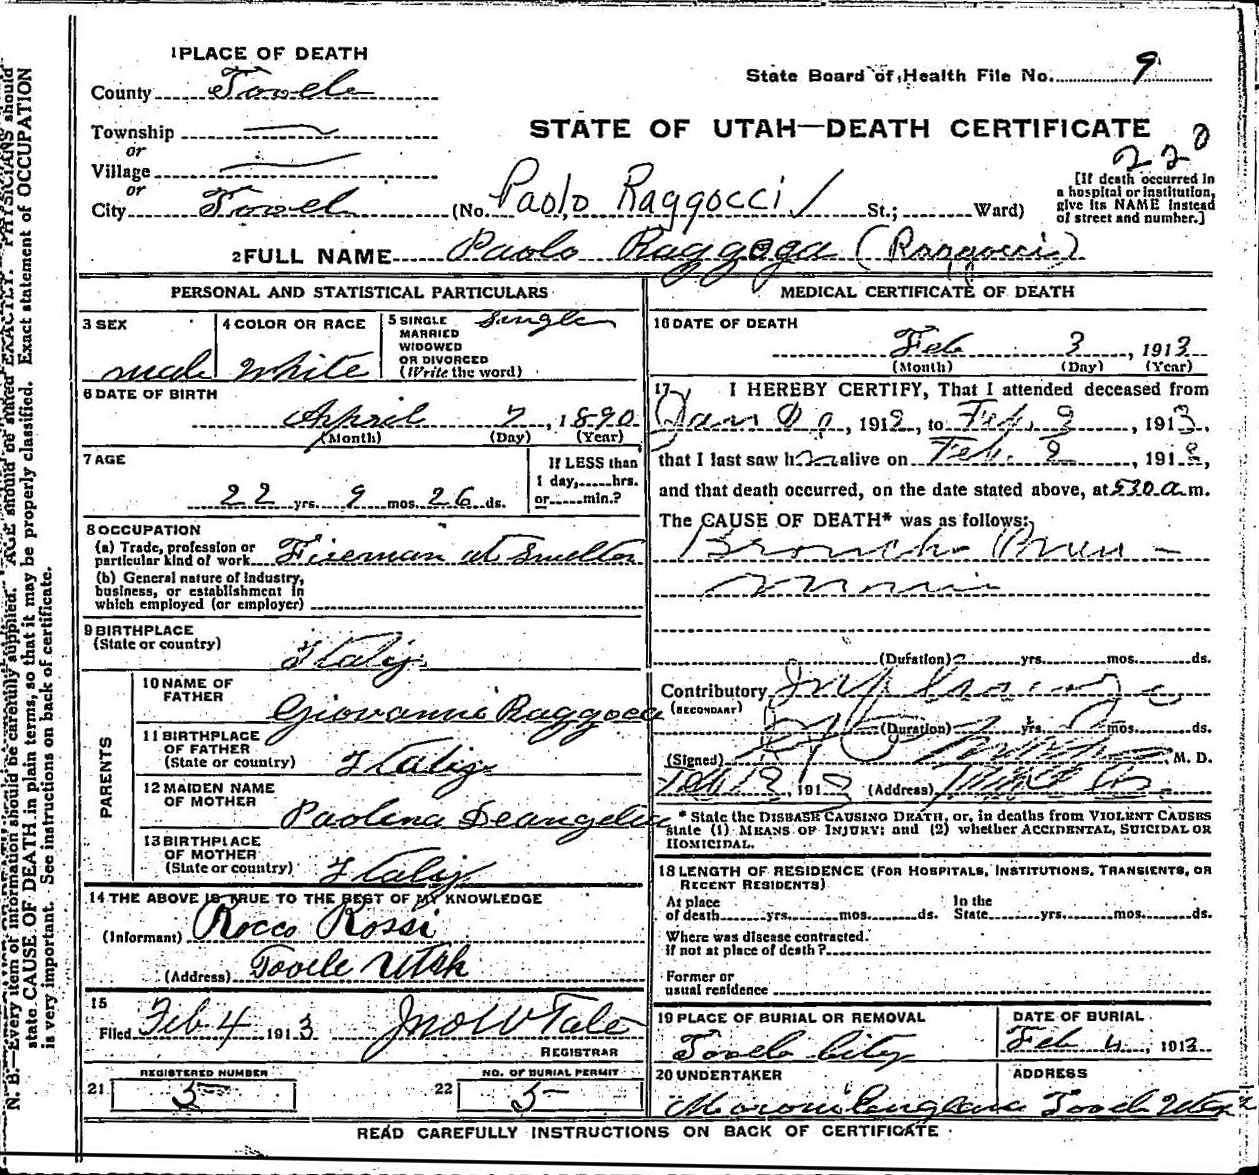 1 PLACE OF DEATH
County Tooele
State Board of Health File No. 9
Township
or
STATE OF UTAH—DEATH CERTIFICATE
Village
or
City Tooele (No. Paolo Raggocci St.; Ward)
[If death occurred in
a hospital or institution,
give its NAME instead
of street and number.]
2 FULL NAME Paolo Raggoga (Raggocci)
PERSONAL AND STATISTICAL PARTICULARS
3 SEX
male
4 COLOR OR RACE
White
5 SINGLE
MARRIED
WIDOWED
OR DIVORCED
(Write the word)
Single
6 DATE OF BIRTH
April 7, 1890
(Month) (Day) (Year)
7 AGE
22 yrs. 9 mos. 26 ds.
If LESS than
1 day,......hrs.
or......min.?
8 OCCUPATION
(a) Trade, profession or
particular kind of work Fireman at Smelter
(b) General nature of industry,
business, or establishment in
which employed (or employer)
9 BIRTHPLACE
(State or country)
Italy
PARENTS
10 NAME OF
FATHER
Giovanni Raggoca
11 BIRTHPLACE
OF FATHER
(State or country)
Italy
12 MAIDEN NAME
OF MOTHER
Paolina Deangelis
13 BIRTHPLACE
OF MOTHER
(State or country)
Italy
14 THE ABOVE IS TRUE TO THE BEST OF MY KNOWLEDGE
(Informant) Rocco Rossi
(Address) Tooele Utah
15
Filed Feb 4 1913 Jno W Tate
REGISTRAR
21 REGISTERED NUMBER
5
22 NO. OF BURIAL PERMIT
5
MEDICAL CERTIFICATE OF DEATH
16 DATE OF DEATH
Feb 3, 1913
(Month) (Day) (Year)
17 I HEREBY CERTIFY, That I attended deceased from
Jan, 191, to Feb, 1913,
that I last saw h alive on Feb. 2, 191,
and that death occurred, on the date stated above, at 530 a.m.
The CAUSE OF DEATH* was as follows:
Broncho Pneu-
monia
(Duration) yrs. mos. ds.
Contributory
(SECONDARY)
(Duration) yrs. mos. ds.
(Signed) M. D.
Feb, 191 (Address)
* State the DISEASE CAUSING DEATH, or, in deaths from VIOLENT CAUSES
state (1) MEANS OF INJURY; and (2) whether ACCIDENTAL, SUICIDAL OR
HOMICIDAL.
18 LENGTH OF RESIDENCE (FOR HOSPITALS, INSTITUTIONS, TRANSIENTS, OR
RECENT RESIDENTS)
At place
of death yrs. mos. ds.
In the
State yrs. mos. ds.
Where was disease contracted.
if not at place of death?
Former or
usual residence
19 PLACE OF BURIAL OR REMOVAL
Tooele City
DATE OF BURIAL
Feb 4, 1913
20 UNDERTAKER
Moroni England
ADDRESS
Tooele Utah
READ CAREFULLY INSTRUCTIONS ON BACK OF CERTIFICATE
N. B.—Every item of information should be carefully supplied. AGE should be stated EXACTLY. PHYSICIANS should
state CAUSE OF DEATH in plain terms, so that it may be properly classified. Exact statement of OCCUPATION
is very important. See instructions on back of certificate.